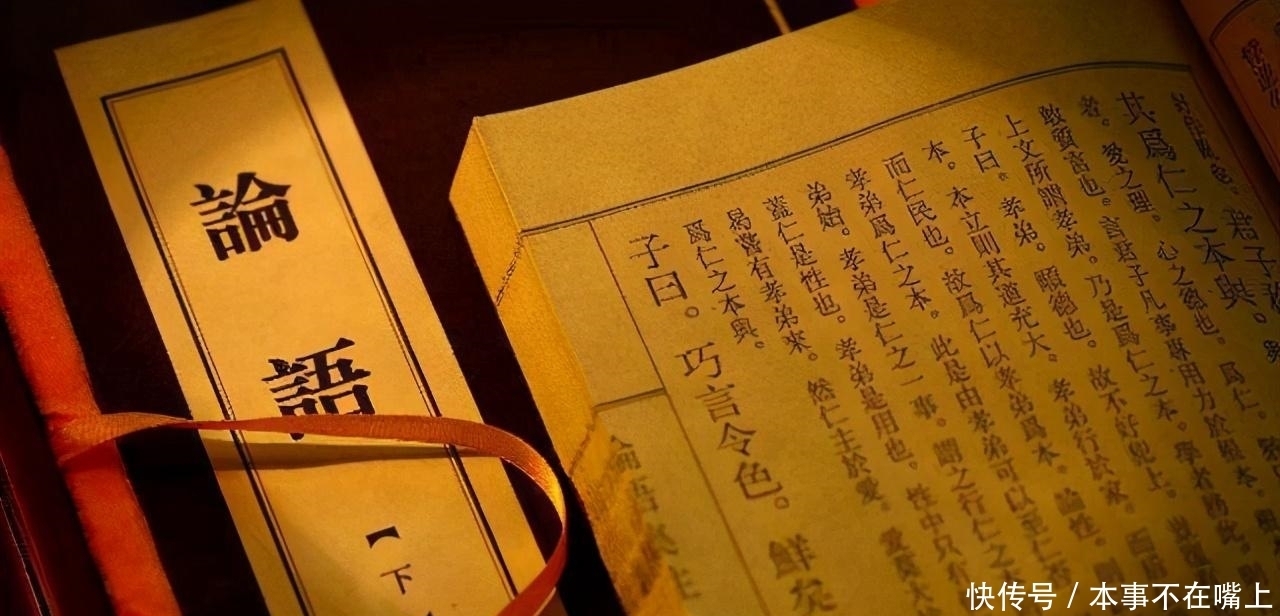 論語
【下
君子務
其爲仁之本與。
者。愛之理。心之德也。爲仁。
敢質言也。言君子凡事專用力於根本。
上文所謂孝弟。乃是爲仁之本。學者務此。
子曰。孝弟。順德也。故不好犯上。豈復
本。本立則其道充大。孝弟行於家。而後
而仁民也。故爲仁以孝弟爲本。論性。則
孝弟爲仁之本。此是由孝弟可以至仁
弟始。孝弟是仁之一事。謂之行仁之本
蓋仁是性也。孝弟是用也。性中只有
曷嘗有孝弟來。然仁主於愛。愛莫大
爲仁之本與。
子曰。巧言令色。鮮矣
快传号 / 本事不在嘴上